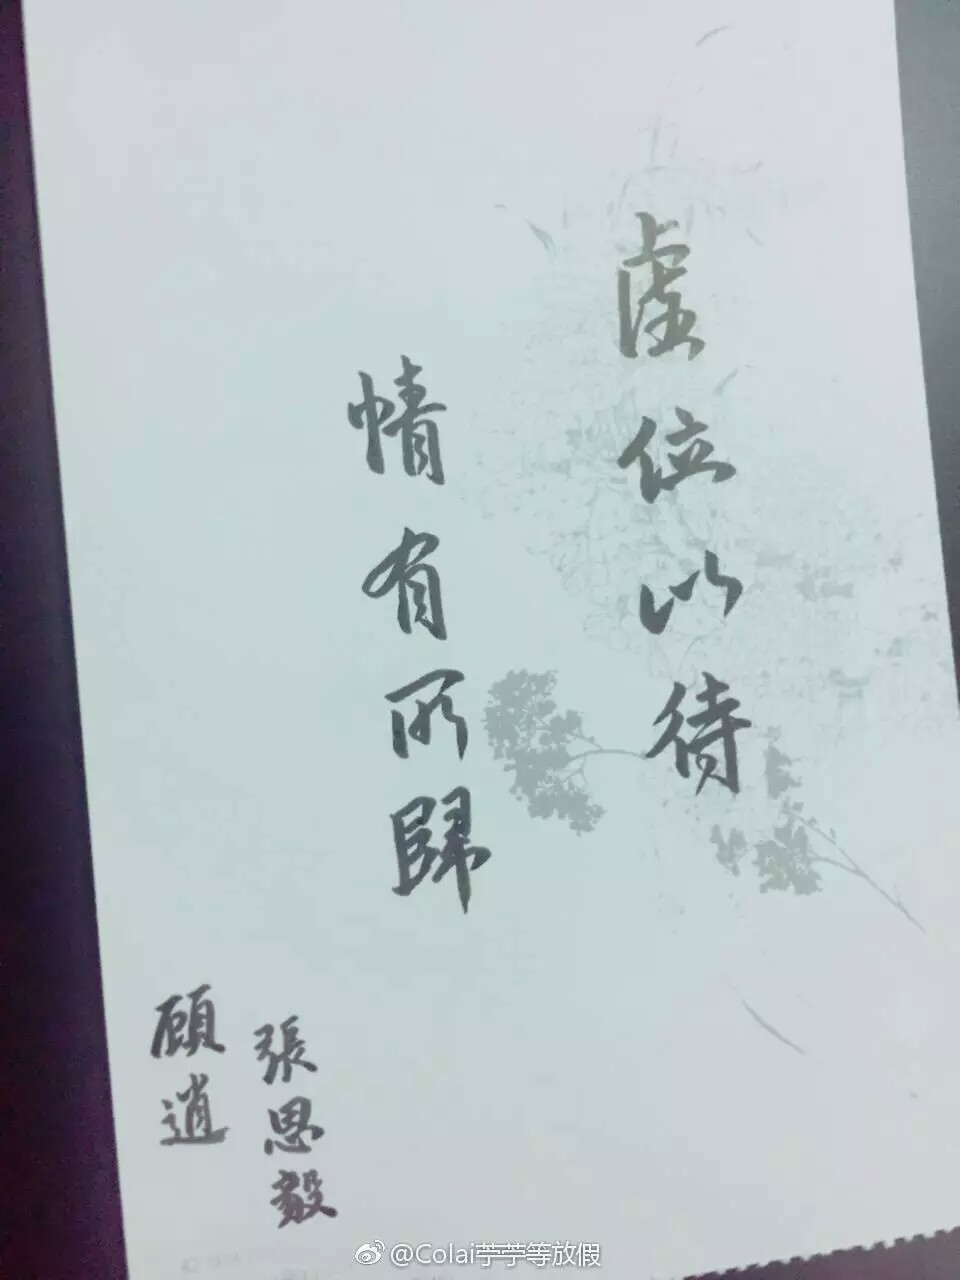 虚位以待
情有所歸
張思毅
顾逍
@Colai苧苧等放假